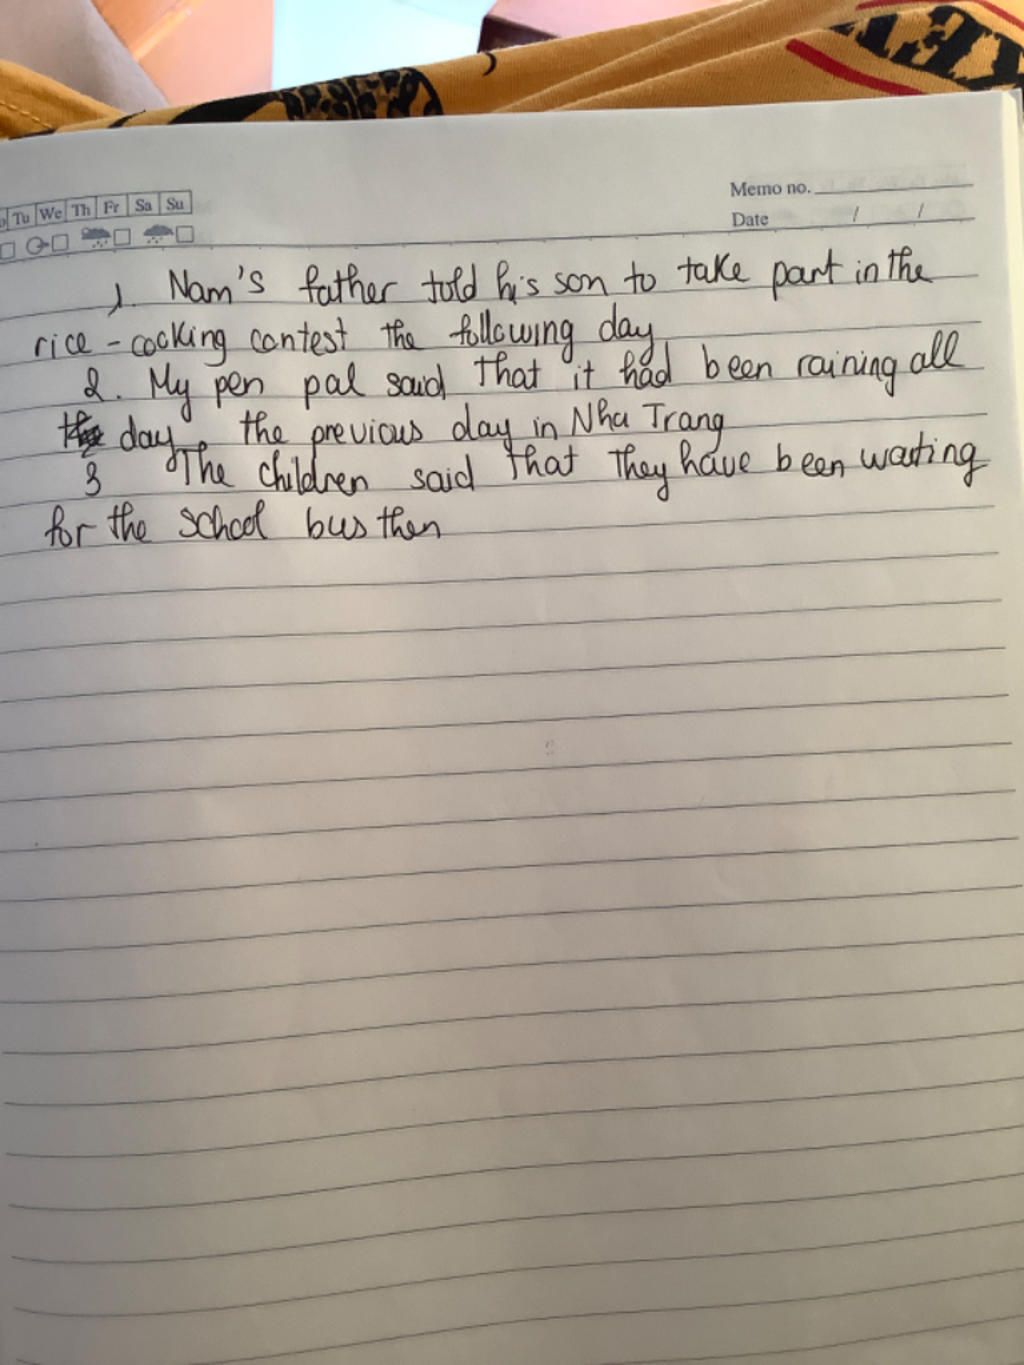 Tu We Th Fr Sa Su
Memo no.
Date / /
1. Nam's father told his son to take part in the
rice - cooking contest the following day
2. My pen pal said that it had been raining all
day, the previous day in Nha Trang
3 The children said that they have been waiting
for the school bus then